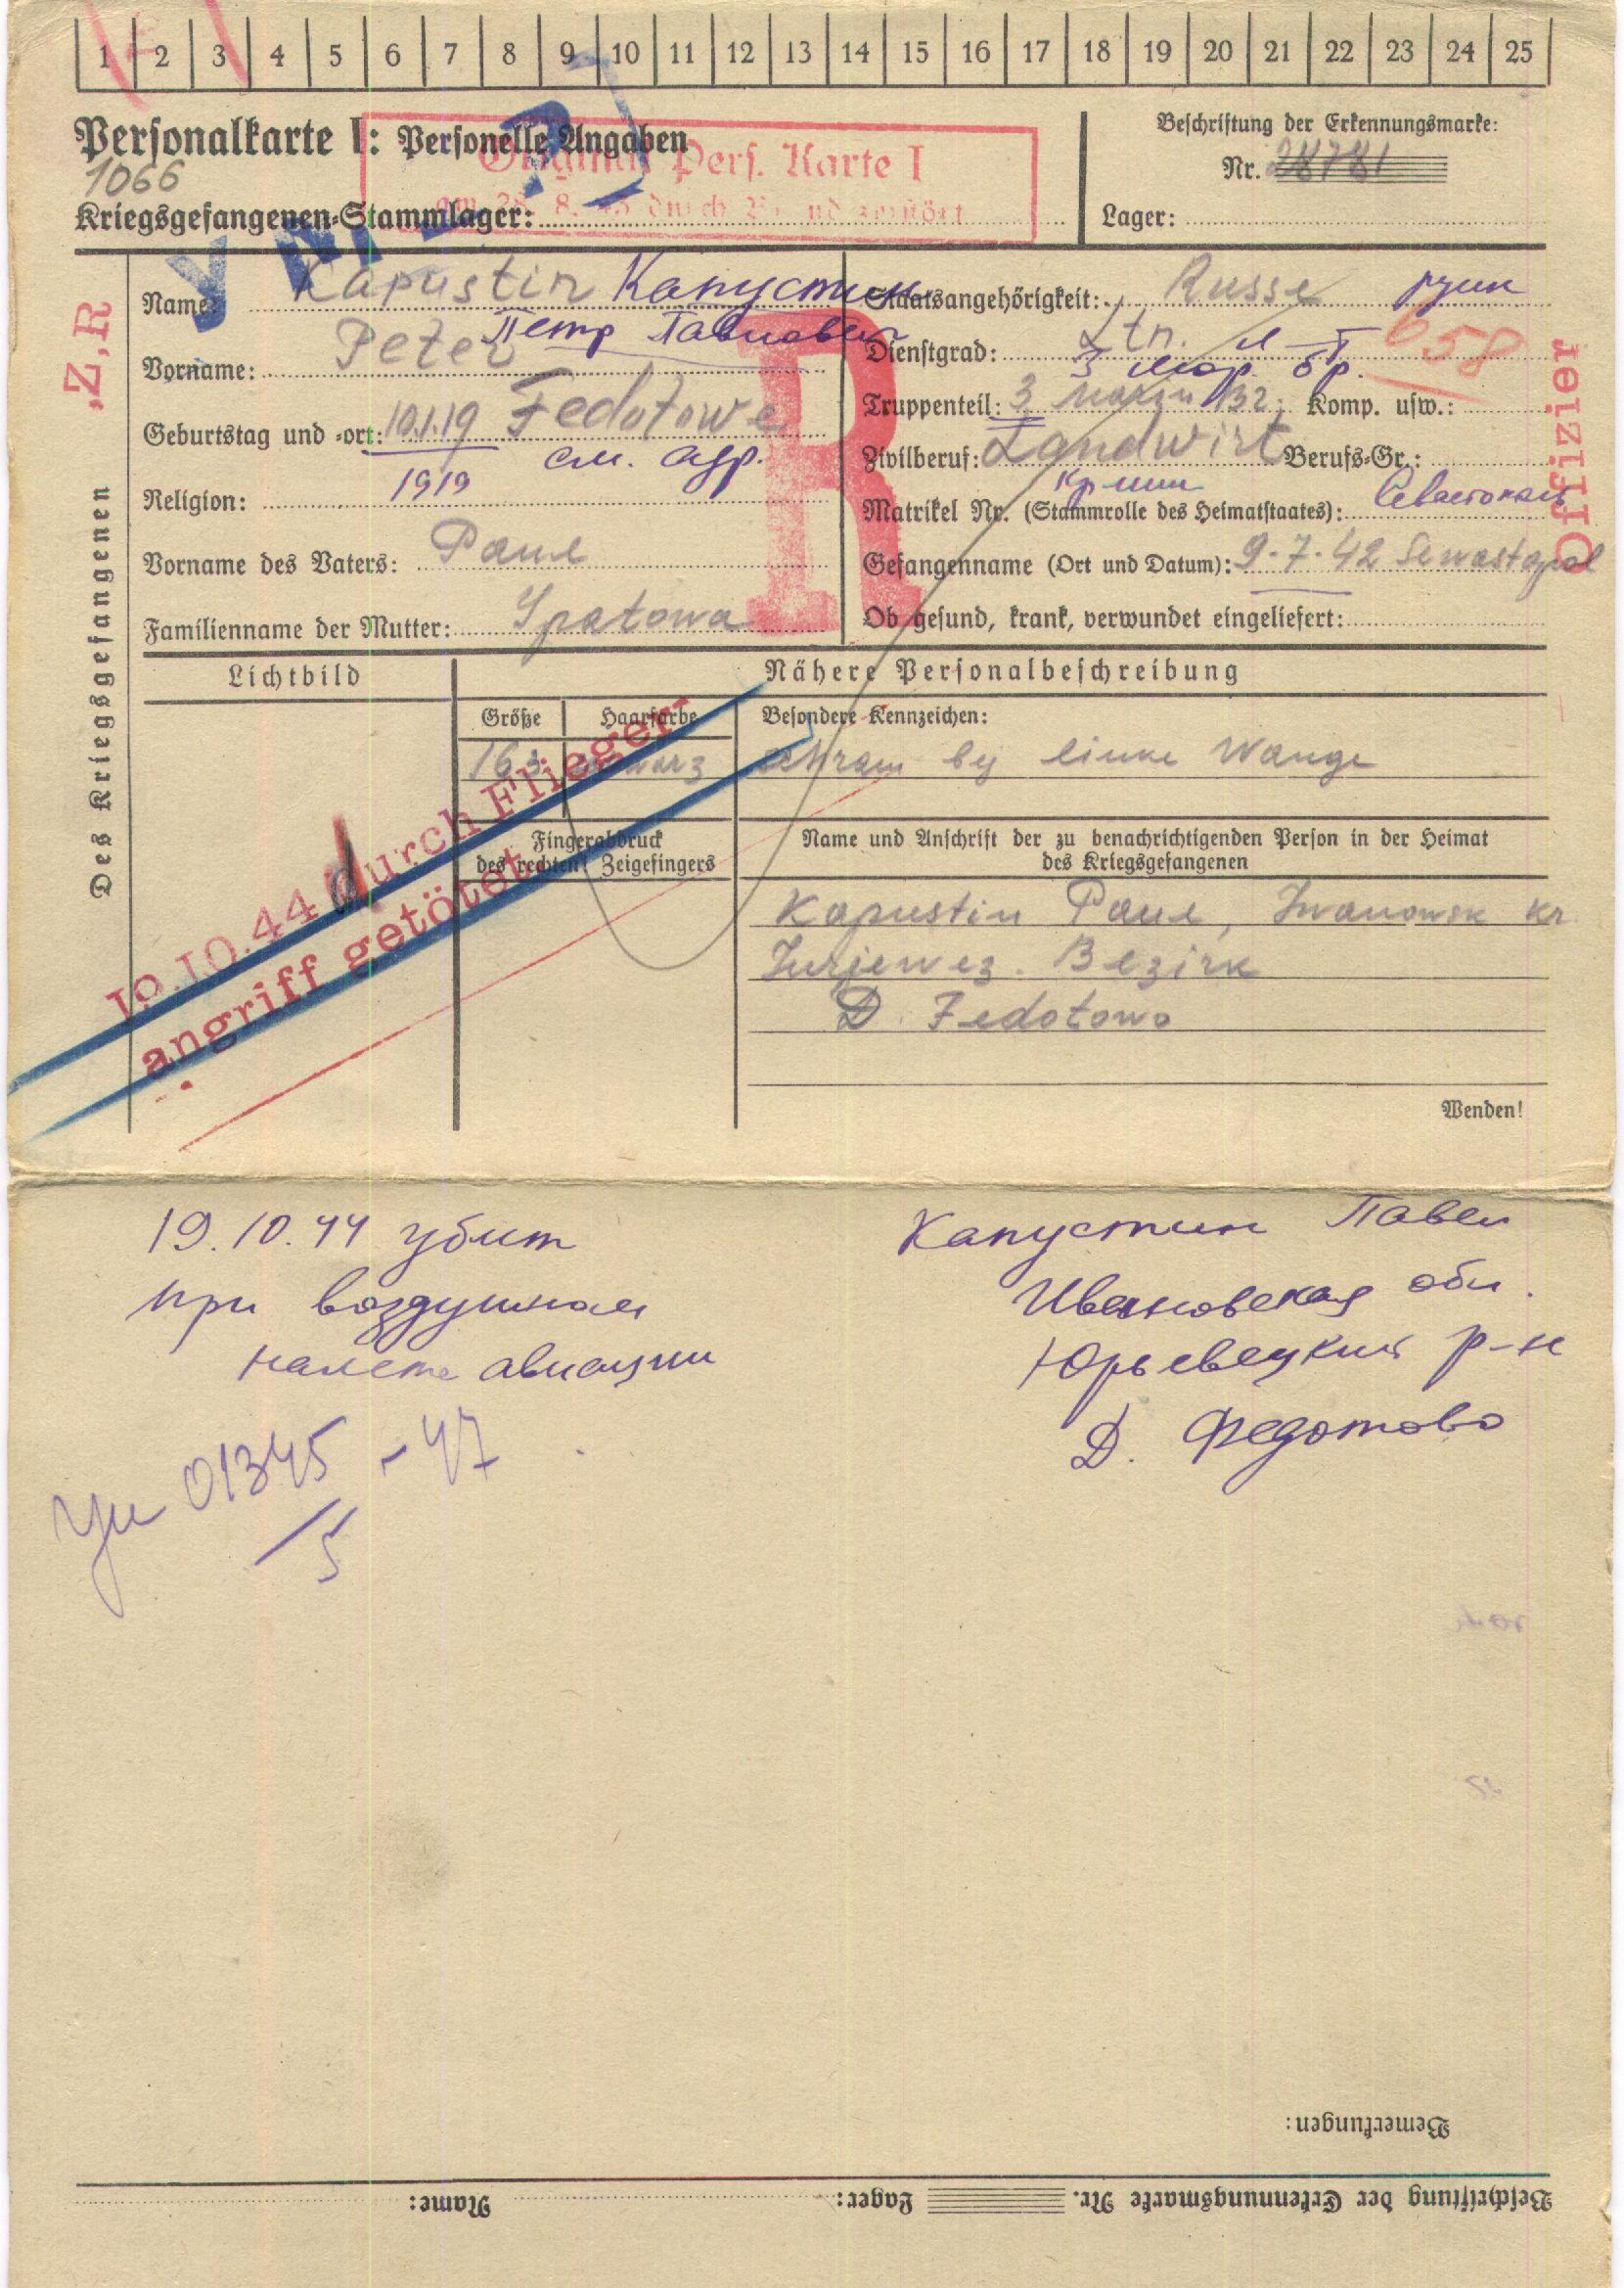 1 2 3 4 5 6 7 8 9 10 11 12 13 14 15 16 17 18 19 20 21 22 23 24 25
Personalkarte I: Personelle Angaben
1066
Original Pers. Karte I
Kriegsgefangenen-Stammlager:
Beschriftung der Erkennungsmarke:
Nr. 28781
Lager:
Z,R
Des Kriegsgefangenen
Name: Kapustin Капустин
Vorname: Peter Петр Павлович
Geburtstag und -ort: 10.1.19 Fedotowe
1919 см. адр.
Religion:
Vorname des Vaters: Paul
Familienname der Mutter: Ipatowa
R
Staatsangehörigkeit: Russe
Dienstgrad: Ltn. л-т
658
3 мор. бр.
Truppenteil: 3 Komp. usw.:
Zivilberuf: Landwirt Berufs-Gr.:
Matrikel Nr. (Stammrolle des Heimatstaates): Севастополь
Gefangenname (Ort und Datum): 9.7.42 Sewastopol
Ob gesund, krank, verwundet eingeliefert:
Offizier
Lichtbild
Nähere Personalbeschreibung
Größe Haarfarbe Besondere Kennzeichen:
163 schwarz
linke Wange
Fingerabdruck
des rechten Zeigefingers
19.10.44 durch Flieger-
angriff getötet.
Name und Anschrift der zu benachrichtigenden Person in der Heimat
des Kriegsgefangenen
Kapustin Paul, Iwanowsk kr
Jurjewez. Bezirk
D. Fedotowo
Wenden!
19.10.44 убит
при воздушном
налете авиации
Капустин Павел
Ивановская обл.
Юрьевецкий р-н
Д. Федотово
01345-47
5
Bemerkungen:
Beschriftung der Erkennungsmarke Nr. Lager: Name: